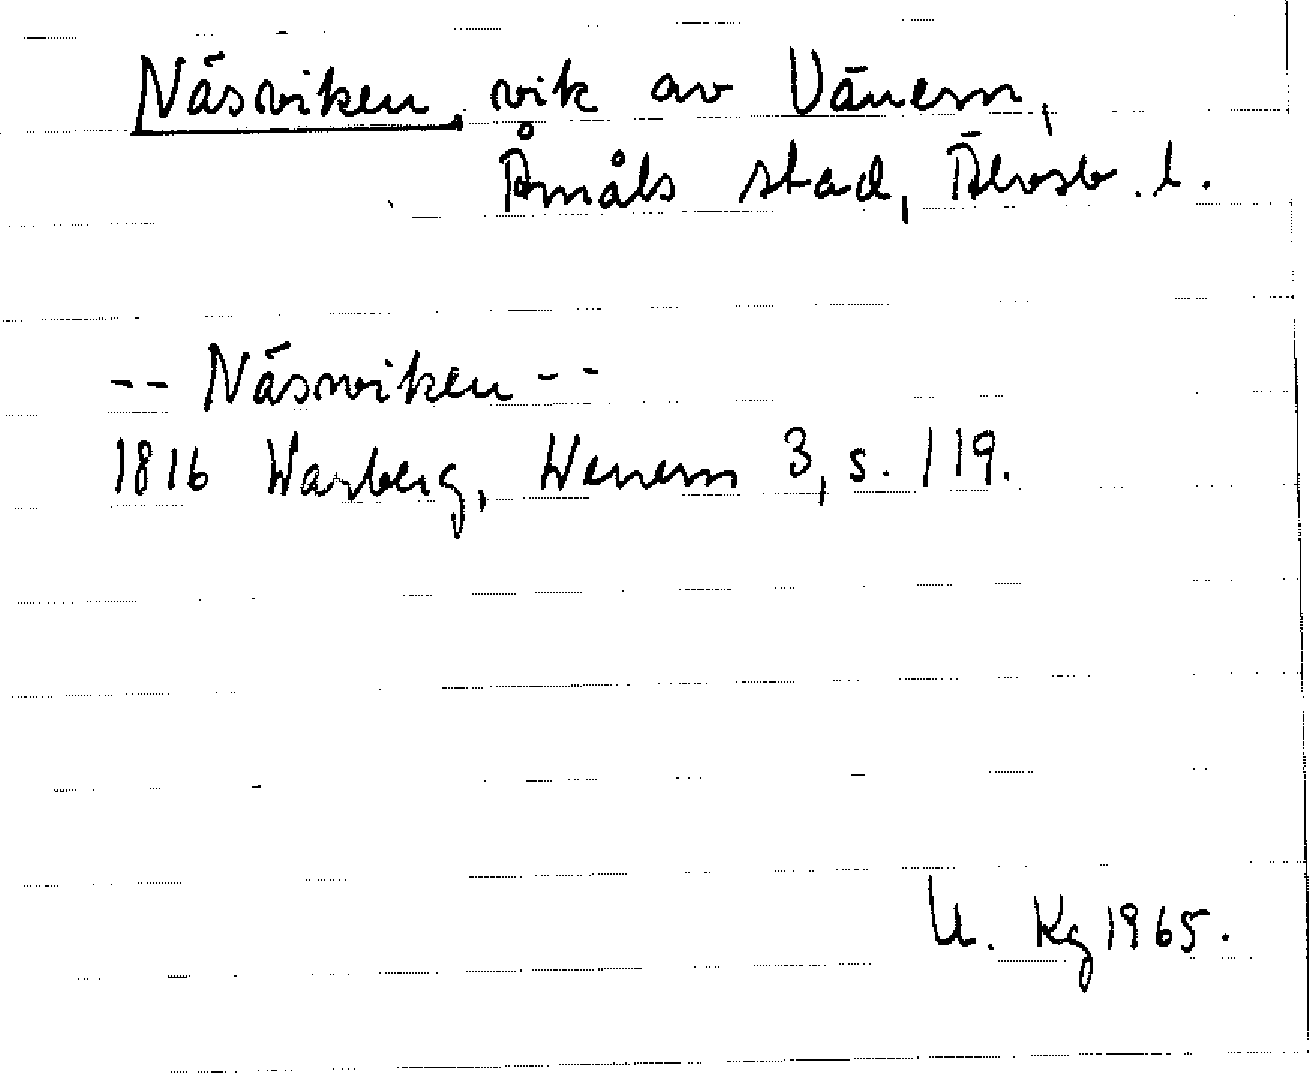 Näsviken, vik av Vänern,
Åmåls stad, Älvsb. l.
-- Näsviken --
1816 Warberg, Wenern 3, s. 119.
U. Kg 1965.